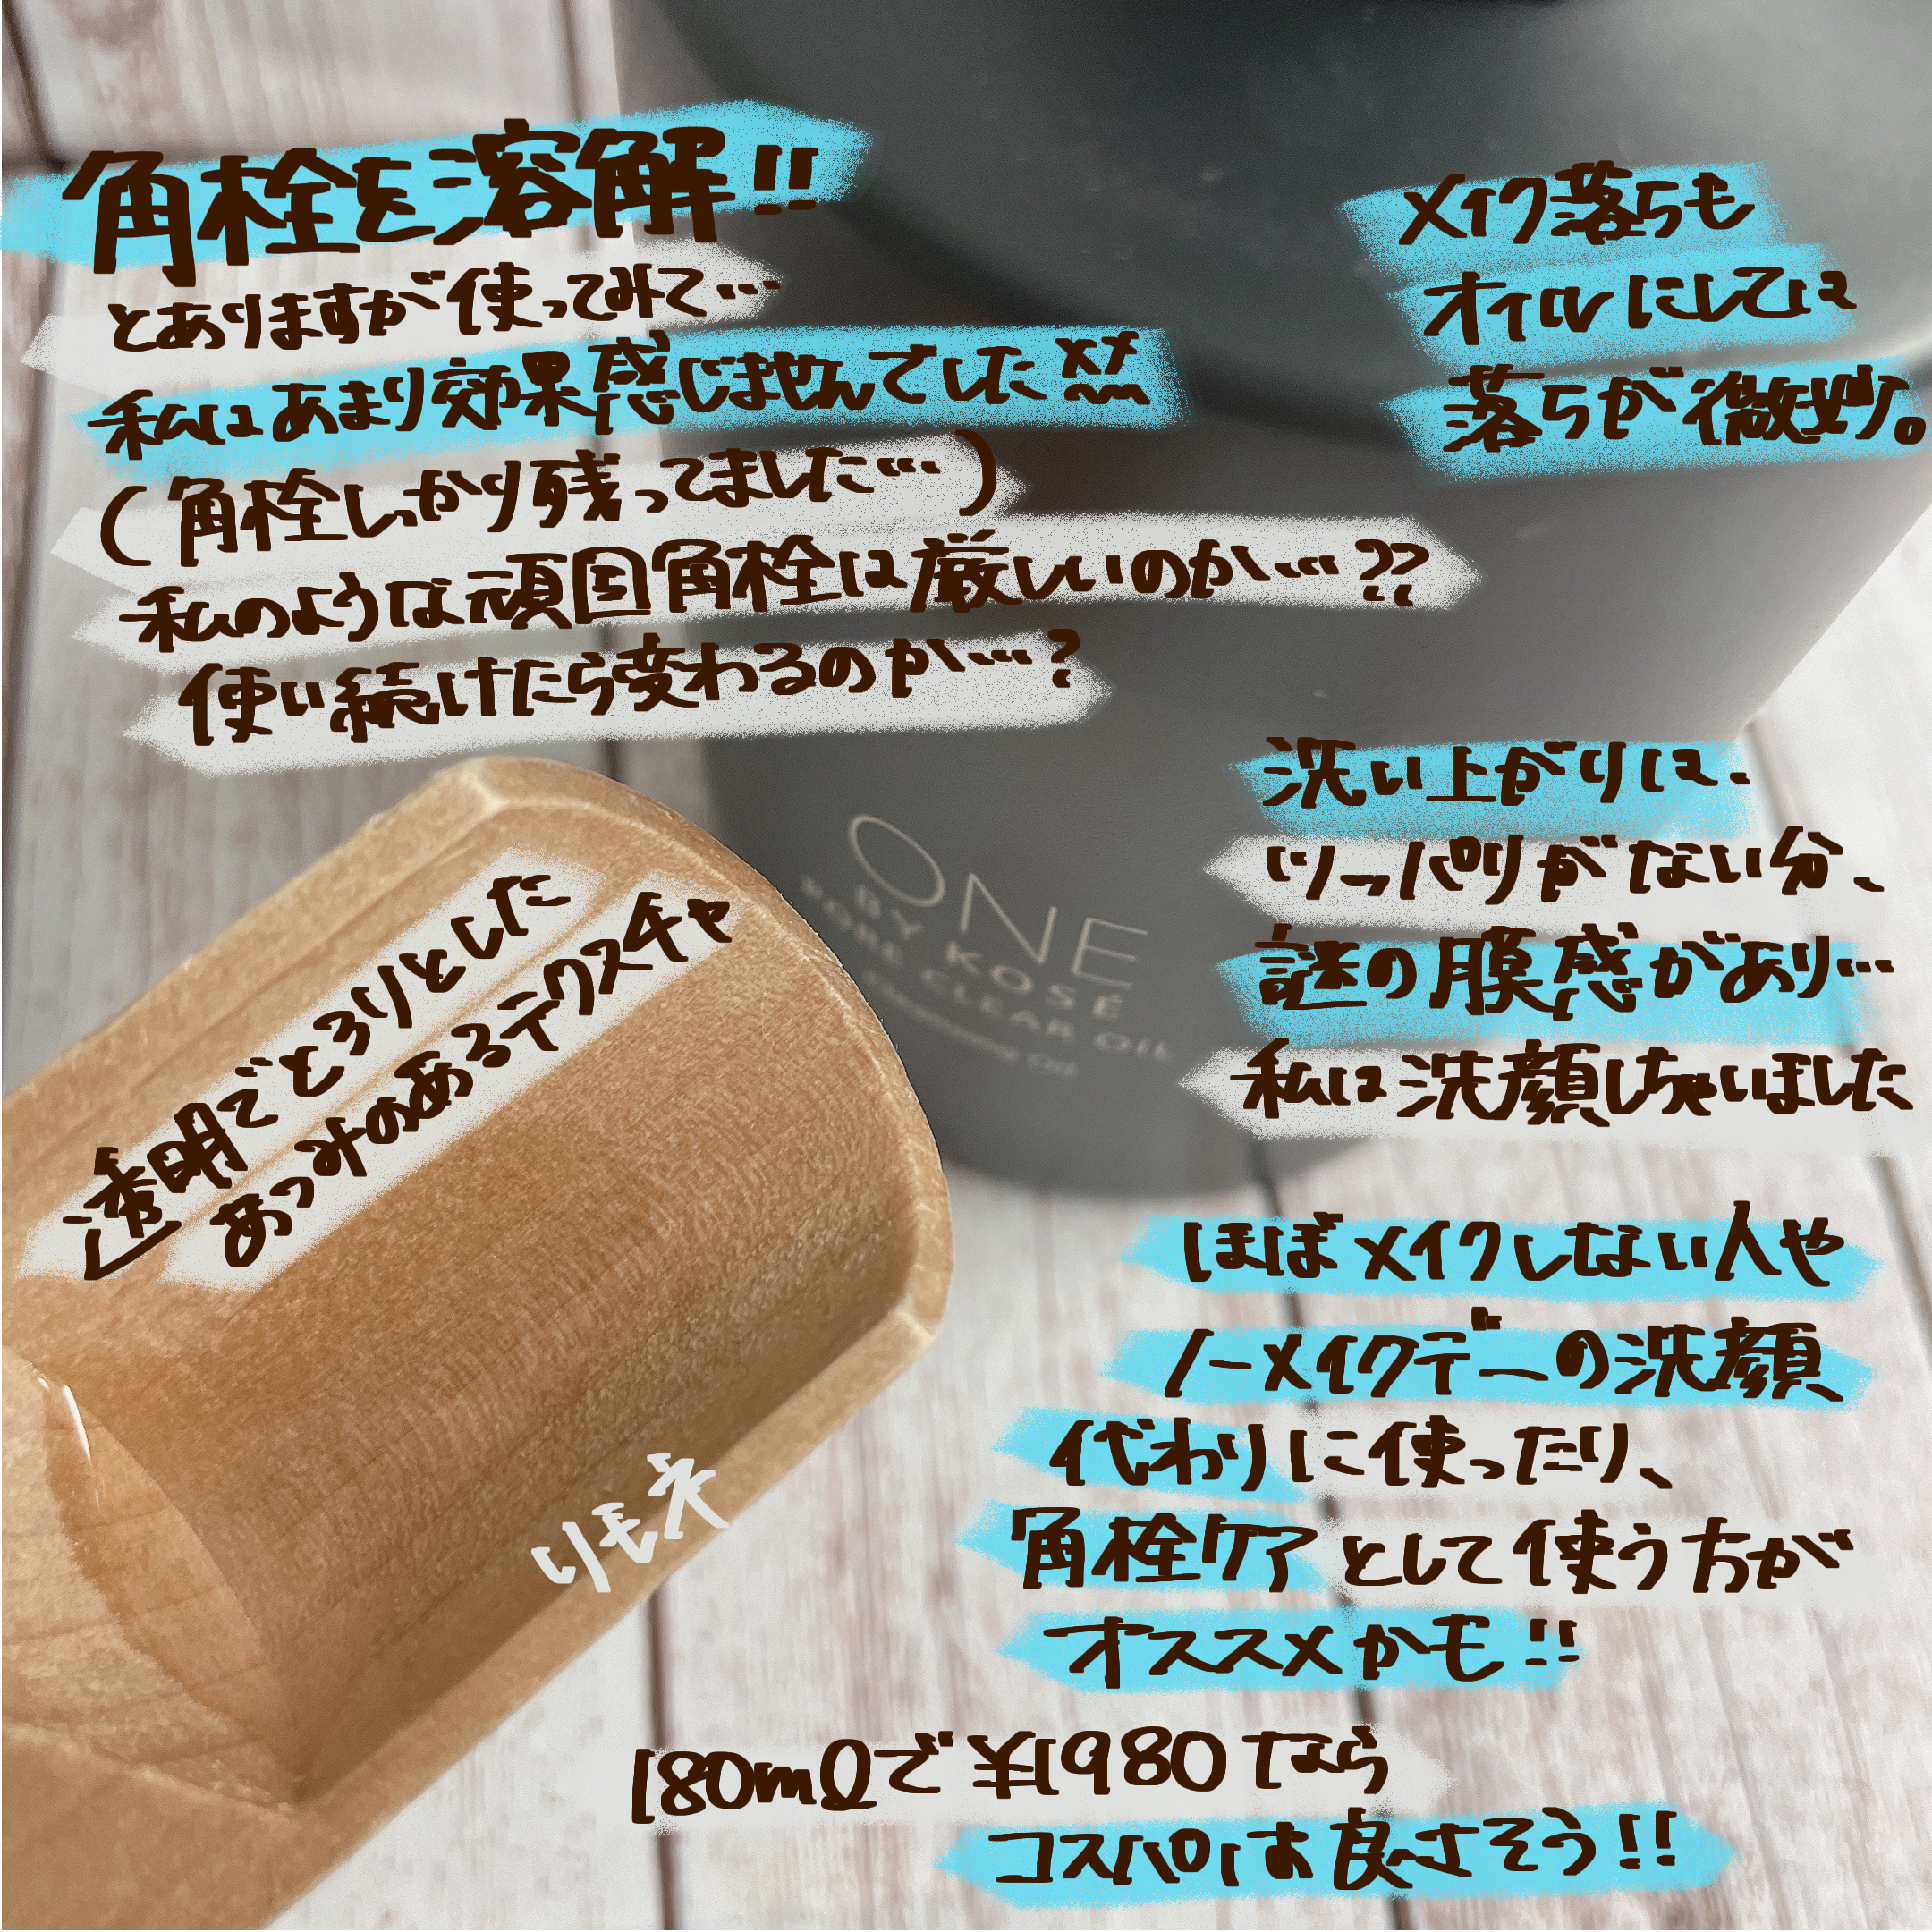 角栓を溶解!!
とありますが使ってみて…
私はあまり効果感じませんでした
(角栓しっかり残ってました…)
私のような頑固角栓は厳しいのか…??
使い続けたら変わるのか…?
メイク落ちも
オイルにしては
落ちが微妙。
洗い上がりは、
ツッパリがない分、
謎の膜感があり…
私は洗顔しちゃいました
ONE
BY KOSÉ
PORE CLEAR OIL
Cleansing Oil
透明でとろりとした
あつみのあるテクスチャ
ほぼメイクしない人や
ノーメイクデーの洗顔
代わりに使ったり、
角栓ケアとして使う方が
オススメかも!!
りモネ
180mlで¥1980なら
コスパは良さそう!!